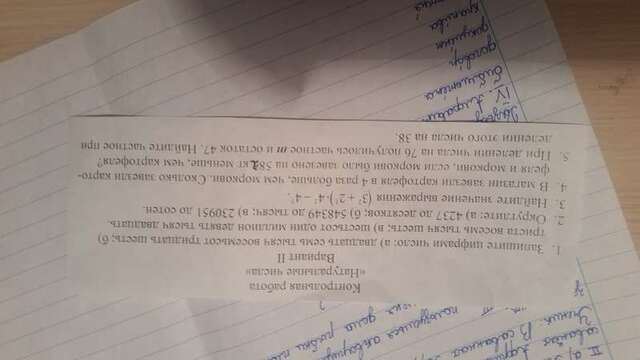 II а)
саваннах Африки
Ученик: В саваннах
пользуешься
дома рыбки
Контрольная работа
«Натуральные числа»
Вариант II
1. Запишите цифрами число: а) двадцать семь тысяч восемьсот тридцать шесть; б)
триста восемь тысяч шесть; в) шестьсот один миллион девять тысяч двадцать.
2. Округлите: а) 4237 до десятков; б) 548349 до тысяч; в) 230951 до сотен.
3. Найдите значение выражения
4. В магазин завезли картофеля в 4 раза больше, чем моркови. Сколько завезли карто-
феля и моркови, если моркови было завезено на кг меньше, чем картофеля?
5. При делении числа на 76 получилось частное m и остаток 47. Найдите частное при
делении этого числа на 38.
IV. Алфавит
библиоте́ка
догово́р
докуме́нт
крапи́ва